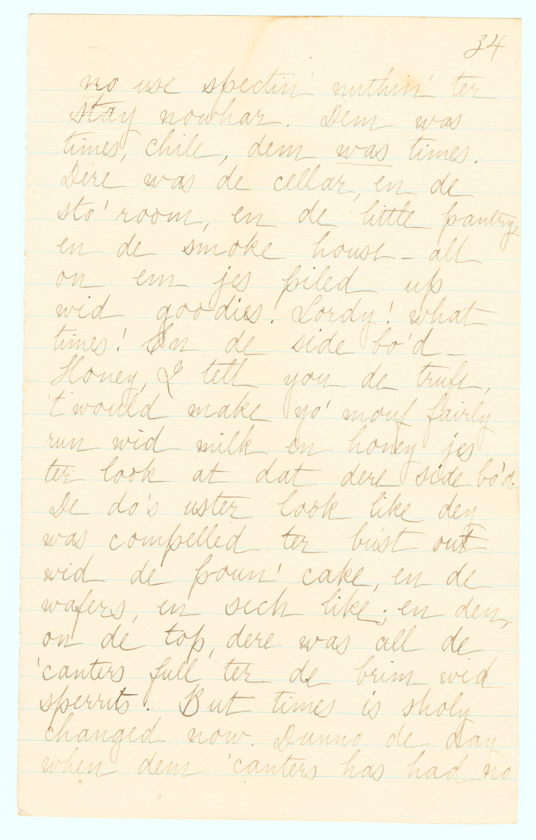 34
no use spectin' nuthin' ter
stay nowhar. Dem was
times, chile, dem was times.
Dere was de cellar, en de
sto' room, en de little pantry,
en de smoke house – all
on em jes piled up
wid goodies. Lordy! what
times! En de side bo'd –
Honey, I tell you de trufe,
't would make yo' mouf fairly
run wid milk en honey jes
ter look at dat dere side bo'd.
De do's uster look like dey
was compelled ter bust out
wid de poun' cake, en de
wafers, en sich like; en den,
on de top, dere was all de
'canters full ter de brim wid
sperrits. But times is sholy
changed now. Dunno de day
when dem 'canters has had no